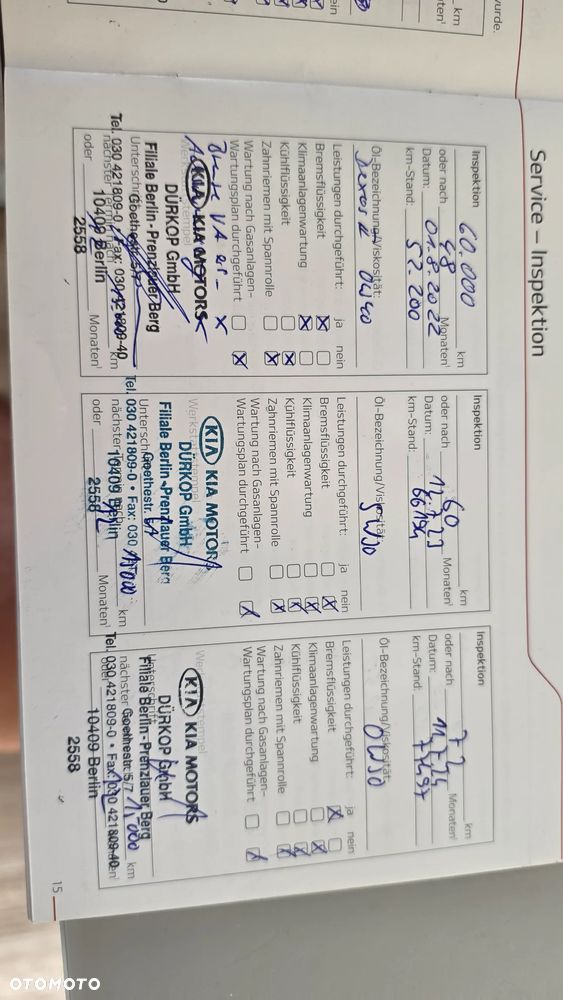 wurde.
km
Service – Inspektion
Inspektion
60.000 km
oder nach 48 Monaten¹
Datum: 01.8.2022
km-Stand: 52 200
Öl-Bezeichnung/Viskosität:
Dexos II 0W40
Leistungen durchgeführt: ja nein
Bremsflüssigkeit
Klimaanlagenwartung
Kühlflüssigkeit
Zahnriemen mit Spannrolle
Wartung nach Gasanlagen-
Wartungsplan durchgeführt
KIA KIA MOTORS
DÜRKOP GmbH
Filiale Berlin-Prenzlauer Berg
Goethestr. 5/7
Tel. 030 421809-0 • Fax: 030 421809-40
10409 Berlin
2558
oder Monaten¹
Inspektion
km
oder nach 60 Monaten¹
Datum: 12.7.23
km-Stand: 66194
Öl-Bezeichnung/Viskosität:
5W30
Leistungen durchgeführt: ja nein
Bremsflüssigkeit
Klimaanlagenwartung
Kühlflüssigkeit
Zahnriemen mit Spannrolle
Wartung nach Gasanlagen-
Wartungsplan durchgeführt
KIA KIA MOTORS
DÜRKOP GmbH
Filiale Berlin-Prenzlauer Berg
Goethestr.
Tel. 030 421809-0 • Fax: 030
km
10409 Berlin
2558
oder Monaten¹
Inspektion
km
oder nach 72 Monaten¹
Datum: 11.7.24
km-Stand: 77497
Öl-Bezeichnung/Viskosität:
0W30
Leistungen durchgeführt: ja nein
Bremsflüssigkeit
Klimaanlagenwartung
Kühlflüssigkeit
Zahnriemen mit Spannrolle
Wartung nach Gasanlagen-
Wartungsplan durchgeführt
KIA KIA MOTORS
DÜRKOP GmbH
Filiale Berlin-Prenzlauer Berg
Goethestr. 5/7
km
Tel. 030 421809-0 • Fax: 030 421809-40
10409 Berlin
2558
15
OTOMOTO